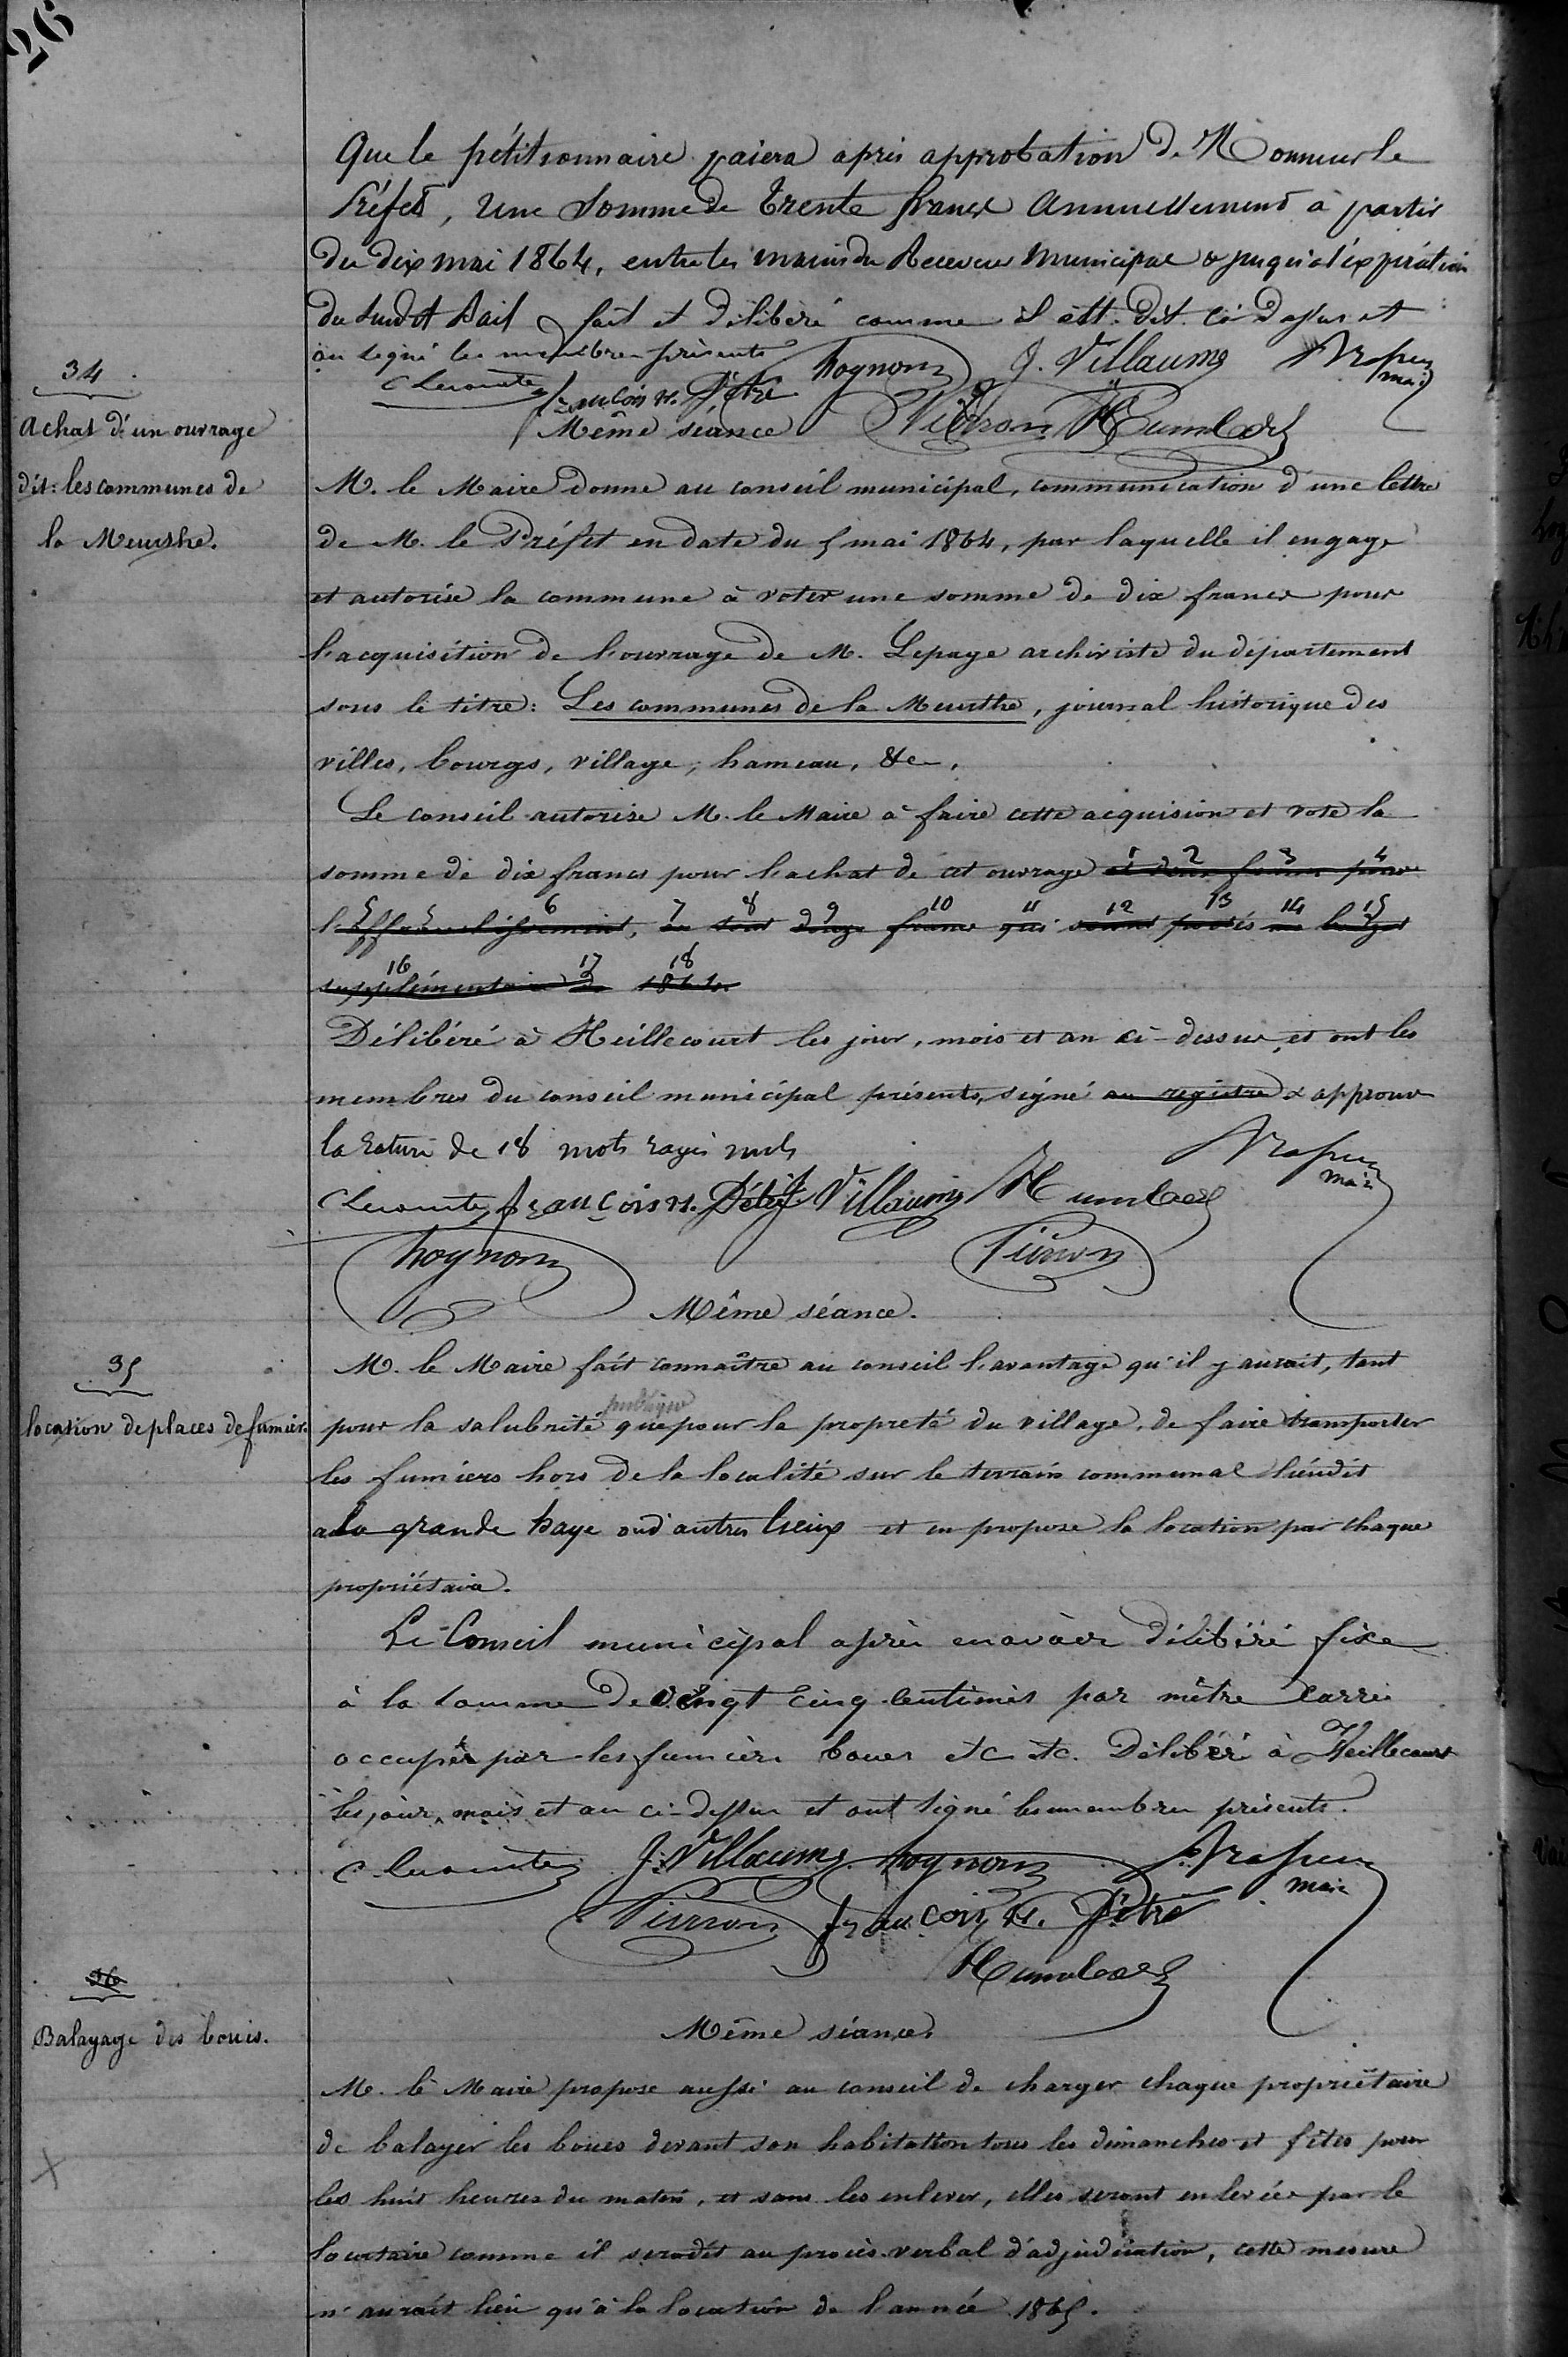 26
Que le pétitionnaire paiera après approbation de Monsieur le
Préfet, Une Somme de Trente francs Annuellement à partir
du dix mai 1864, entre les mains du Receveur Municipal & jusqu'à l'éxpiration
du susdit Bail fait et délibéré comme il est dit ci dessus et
on signé les membres présents
hognon J. Villaume
maire
C Lecomte
François N. Pétré
Pierron Humbert
Même séance
34
Achat d'un ouvrage
dit: les communes de
la Meurthe.
M. le Maire donne au conseil municipal, communication d'une lettre
de M. le Préfet en date du 5 mai 1864, par laquelle il engage
et autorise la commune à voter une somme de dix francs pour
l'acquisition de l'ouvrage de M. Lepage archiviste du département
sous le titre: Les communes de la Meurthe, journal historique des
villes, bourgs, village, hameau, &c.
Le conseil autorise M. le Maire à faire cette acquision et vote la
somme de dix francs pour l'achat de cet ouvrage et deux francs pour
1 2 3 4
l' , de tout douze francs qui seront portés au budget
5 6 7 8 9 10 11 12 13 14 15
supplémentaire de 1864.
16 17 18
Délibéré à Heillecourt les jour, mois et an ci-dessus, et ont les
membres du conseil municipal présents, signé au registre & approuv
la rature de 18 mots rayés nuls
maire
C Lecomte François N. Pétré J. Villaume Humbert
hognon Pierron
Même séance.
35
location de places de fumier.
M. le Maire fait connaître au conseil l'avantage qu'il y aurait, tant
publique
pour la salubrité que pour la propreté du village, de faire transporter
les fumiers hors de la localité sur le terrain communal liéudit
a la grande haye oud'autres lieux et en propose la location par chaque
propriétaire.
Le Conseil municipal après en avoir délibéré fixe
à la somme de vingt cinq centimes par mètre carré
occupés par les fumiers boues etc etc. Délibéré à Heillecourt
les jour, mois et an ci-dessus et ont signé les membres présents.
C Lecomte J. Villaume hognon
maire
Pierron François N. Pétré
Humbert
36
Balayage des boues.
Même séance.
M. le Maire propose aussi au conseil de charger chaque propriétaire
de balayer les boues devant son habitation tous les dimanches et fêtes pour
les huit heures du matin, et sans les enlever, elles seront enlevées par le
locataire comme il sera dit au procès-verbal d'adjudication, cette mesure
n'aurait lieu qu'à la location de l'année 1865.